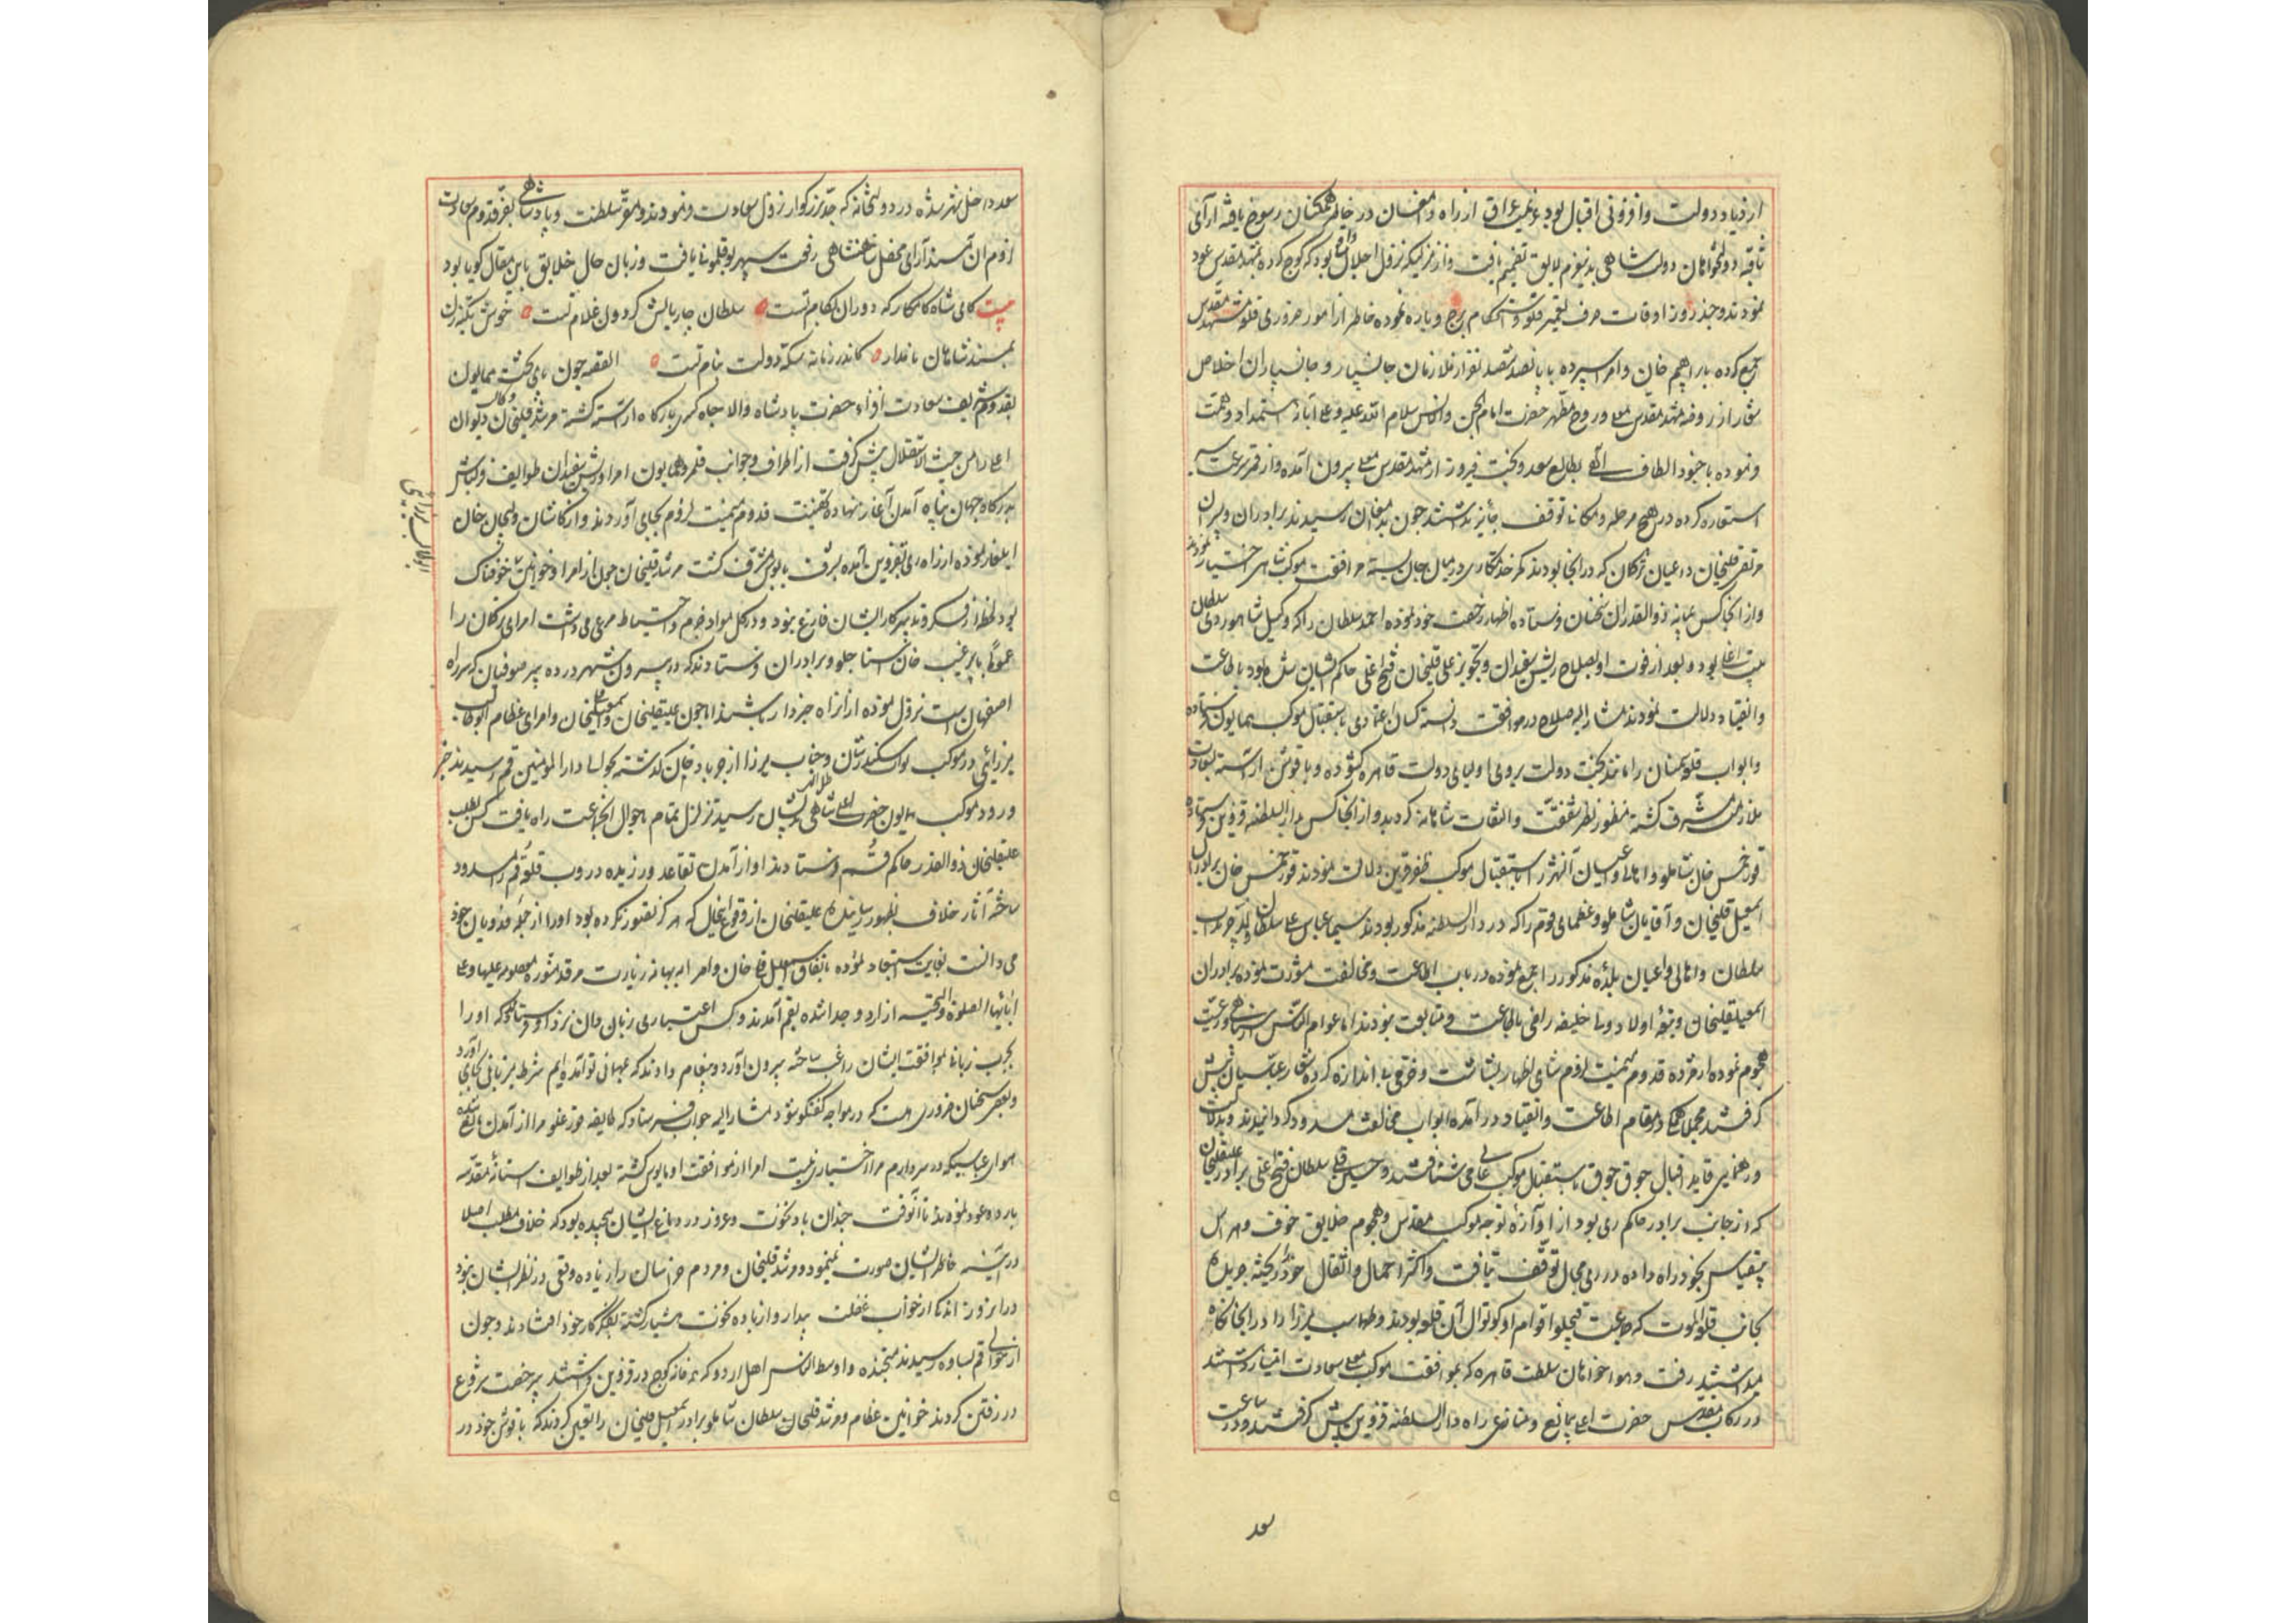 ازدیاد دولت و افزونی اقبال بود عزیمت عراق از راه دامغان در خاطر همگنان رسوخ یافته ارآی
ثاقبه دولتخواهان دولت شاهی بدین عزم لایق تصمیم یافت و از منزلیکه نزول اجلال واقع بود کوچ کرده بمشهد مقدس عود
نمودند و چند روز اوقات صرف تعمیر قلعه و استحکام برج و باره نموده خاطر از امور ضروری قلعه مشهد مقدس
جمع کرده بابراهیم خان وامرا سپرده با پانصد ششصد نفر از ملازمان جانسپار و جانسپاران اخلاص
شعار از روضه مشهد مقدس معلی و روح مطهر حضرت امام الجن والانس سلام الله علیه وعلی آبائه استمداد همت
ونموده با جنود الطاف الهی بطالع سعد و بخت فیروز از مشهد مقدس معلی بیرون آمده و از قمر سرعت سیر
استعاره کرده در هیچ مرحله و مکانی توقف جایز نداشتند چون بدامغان رسیدند برادران و پسران
مرتضی قلیخان و اعیان ترکمان که در انجا بودند کمر خدمتکاری در میان جان بسته مرافقت موکب شاهی اختیار نمودند
و از انجا کس بمیانه ذوالقدران سمنان فرستاده اظهار رخصت خود نموده احمد سلطان را که وکیل شاهوردی سلطان
بیت اغلی بود و بعد از فوت او بصلاح ریش سفیدان و تجویز علی قلیخان فتح اغلی حاکم ایشان شده بود باطاعت
وانقیاد دلالت نمودند مشار الیه صلاح در موافقت دانسته کسان اعتمادی باستقبال موکب همایون فرستاده
وابواب قلعه سمنان را مانند بخت دولت بروی اولیای دولت قاهره کشوده و با قوشن اراسته بسعادت
ملازمت مشرف کشته منظور نظر شفقت و التفات شاهانه کردید و از انجا کس بدار السلطنه قزوین فرستاده
قورخمس خان شاملو و اهالی و اعیان آنشهر را باستقبال موکب ظفر قرین دلالت نمودند قورخمس خان برادران
اسمعیل قلیخان و آقایان شاملو و عظمای قوم را که در دار السلطنه مذکور بودند سیما عباس علی سلطان ولد چرنداب
سلطان و اهالی و اعیان بلده مذکور را جمع نموده در باب اطاعت و مخالفت مشورت نموده برادران
اسمعیلقلیخان و بقیه اولاد ودنا خلیفه راضی باطاعت و متابعت نبودند اما عوام الناس سپاهی و رعیت
هجوم نموده از مژده قدوم میمنت لزوم شاهی اظهار بشاشت و فرحی بی اندازه کرده شعار عباسیان پیش
کرفتند مجملا همکی در مقام اطاعت وانقیاد در آمده ابواب مخالفت مسدود کردانیدند و بدلالت بخت
و رهنمایی قاید اقبال جوق جوق باستقبال موکب عالی می شتافتند و حسین قلی سلطان فتح اغلی برادر علیقلیخان
که از جانب برادر حاکم ری بود از آوازه توجه موکب مقدس و هجوم خلایق خوف و هراس
بیقیاس بخود راه داده در ری مجال توقف نیافت و اکثر احمال و اثقال خود را ریخته جریده
بجانب قلعه الموت که جماعت قیچلو اقوام او کوتوال آن قلعه بودند و طهماسب میرزا را در انجا نکاه
میداشتند رفت و هوا خواهان سلطنت قاهره که بموافقت موکب معلی سعادت امتیاز داشتند
در رکاب مقدس حضرت اعلی بیمانع و منازعی راه دار السلطنه قزوین پیش کرفتند و در ساعت
سعد
سعد داخل شهر شده در دولتخانه که جد بزرکوار نزول سعادت فرمودند و مقر سلطنت و پادشاهی بفر قدوم سعادت
لزوم آن مسند آرای محفل شاهنشاهی رفعت سپهر بوقلمونی یافت و زبان حال خلایق باین مقال کویا بود
بیت کای شاه کامکار که دوران بکام تست سلطان چار بالش کردون غلام تست خوش تکیه زن
بمسند شاهان نامدار کاندر زمانه سکه دولت بنام تست القصه چون پای تخت همایون
بقدوم شریف سعادت افزای حضرت پادشاه والا جاه کسری بارکاه اراسته کشته مرشد قلیخان وکالت دیوان
اعلی را من حیث الاستقلال پیش کرفت از اطراف و جوانب قلمرو همایون امرا و ریش سفیدان طوایف قزلباش
بدرکاه جهان پناه آمدن آغاز نهاده تهنیت قدوم میمنت لزوم بجای آوردند و از کاشان ولیجان خان
ایلغار نموده از راه ری بقزوین آمده بشرف پابوس مشرف کشت مرشد قلیخان چون از امرا و خوانین خوفناک
بود لحظه از فکر و تدبیر کار ایشان فارغ نبود و در کل مواد حزم و احتیاط مرعی می داشت امرای ترکمان را
عموما با برغیب خان استاجلو و برادران فرستادند که در بیرون شهر در ده پیر صوفیان که سر راه
اصفهان است نزول نموده از انراه خبردار باشند اما چون علیقلیخان و اسمعیلقلیخان و امرای عظام ابوطالب
میرزائی در موکب نواب سکندرشان و جناب میرزا از جربادقان کذشته بحوالی دار المؤمنین قم رسیدند خبر
ورود موکب همایون حضرت اعلی شاهی ظل اللهی بایشان رسید تزلزل تمام باحوال انجماعت راه یافت کس بطلب
علیقلیخان ذوالقدر حاکم قم فرستادند او از آمدن تقاعد ورزیده دروب قلعه قم را مسدود
ساخته آثار خلاف بظهور رسانید علیقلیخان از وقوع اینحال که هرکز تصور نکرده بود او را از جمله فدویان خود
می دانست بغایت استبعاد نموده باتفاق اسمعیل قلی خان و امرا به بهانه زیارت مرقد منوره معصومه علیها وعلی
ابائها الصلوة والتحیه از اردو جدا شده بقم آمدند و کس اعتباری زبان دان نزد او فرستادند که او را
بچرب زبانی بموافقت ایشان راغب ساخته بیرون آورد و پیغام دادند که بمهمانی تو آمده ایم شرط میزبانی بجای آورد
و بعضی سخنان ضروری هست که در مواجهه کفتکو شود مشار الیه جواب فرستاد که طایفه قورغلو مرا از آمدن مانعند
هوای عباسیکه در سر دارم مرا اختیاری نیست امرا از موافقت او مایوس کشته بعد از طواف استانه مقدسه
باردو عود نمودند تا آنوقت چندان باد نخوت و غرور در دماغ ایشان پیچیده بود که خلاف مطلب اصلا
در آینه خاطر ایشان صورت نمینمود و مرشد قلیخان و مردم خراسان را زیاده وقعی در نظر ایشان نبود
در انروز اندکی از خواب غفلت بیدار و از باده نخوت هشیار کشته بفکر کار خود افتادند و چون
از حوالی قم بساوه رسیدند متجنده و اوسط الناس اهل اردو که خانه کوچ در قزوین داشتند بیرخصت شروع
در رفتن کردند خوانین عظام و مرشد قلیخان سلطان شاملو برادر اسمعیل قلیخان را تعین کردند که با قوشن خود در